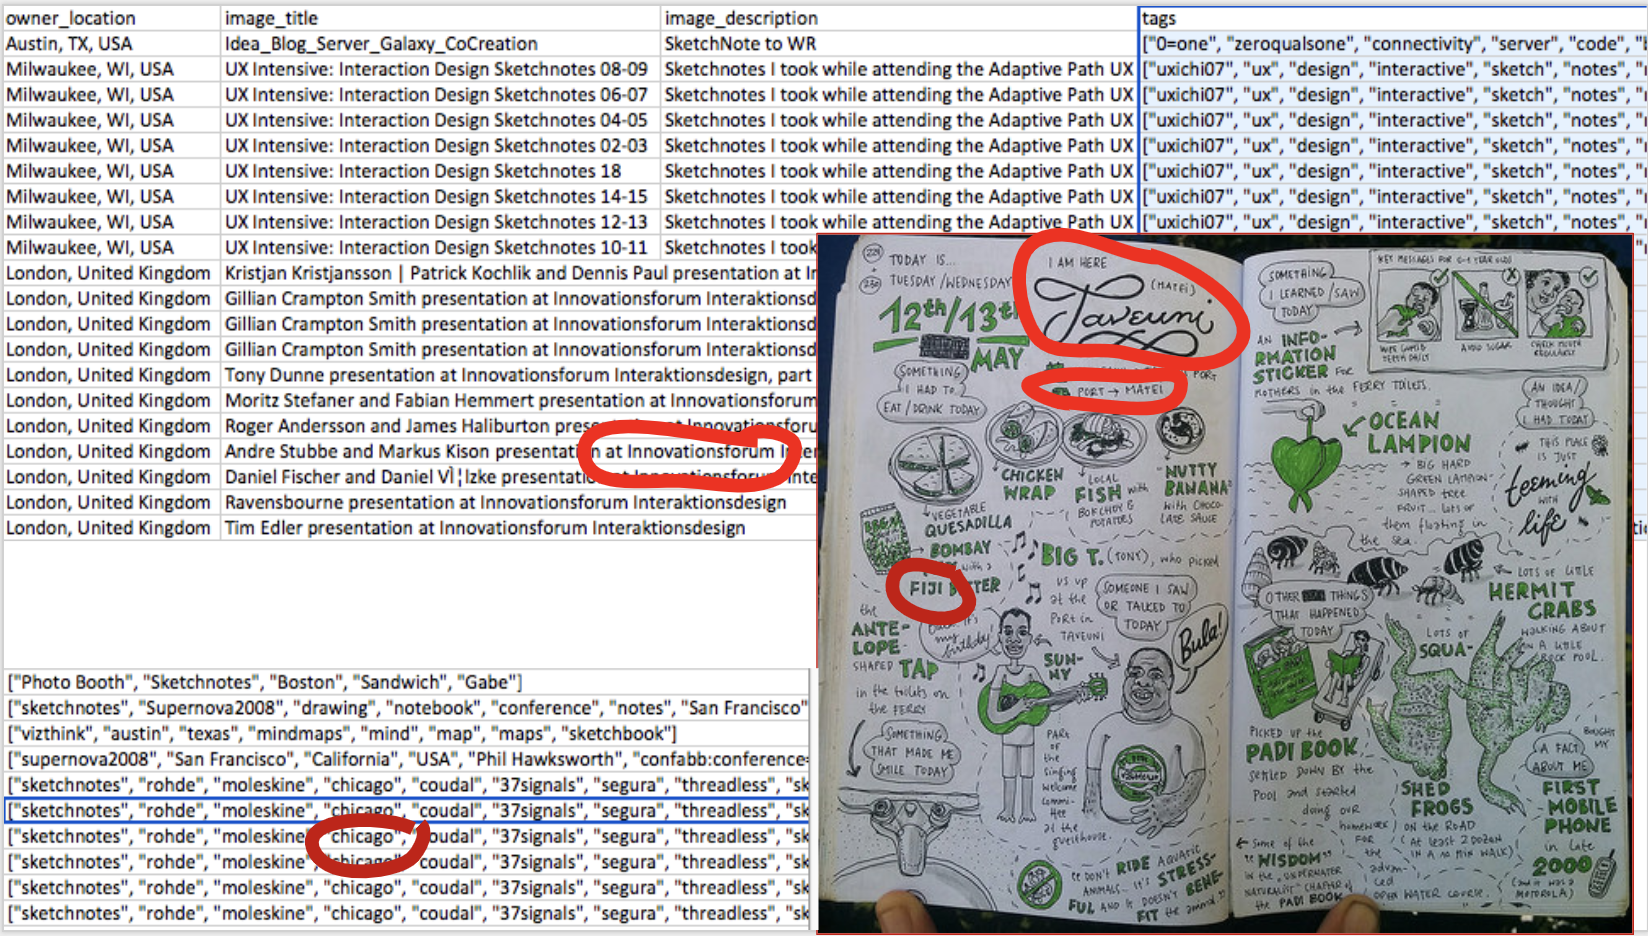 owner_location image_title image_description tags
Austin, TX, USA Idea_Blog_Server_Galaxy_CoCreation SketchNote to WR ["0=one", "zeroqualsone", "connectivity", "server", "code",
Milwaukee, WI, USA UX Intensive: Interaction Design Sketchnotes 08-09 Sketchnotes I took while attending the Adaptive Path UX ["uxichi07", "ux", "design", "interactive", "sketch", "notes",
Milwaukee, WI, USA UX Intensive: Interaction Design Sketchnotes 06-07 Sketchnotes I took while attending the Adaptive Path UX ["uxichi07", "ux", "design", "interactive", "sketch", "notes",
Milwaukee, WI, USA UX Intensive: Interaction Design Sketchnotes 04-05 Sketchnotes I took while attending the Adaptive Path UX ["uxichi07", "ux", "design", "interactive", "sketch", "notes",
Milwaukee, WI, USA UX Intensive: Interaction Design Sketchnotes 02-03 Sketchnotes I took while attending the Adaptive Path UX ["uxichi07", "ux", "design", "interactive", "sketch", "notes",
Milwaukee, WI, USA UX Intensive: Interaction Design Sketchnotes 18 Sketchnotes I took while attending the Adaptive Path UX ["uxichi07", "ux", "design", "interactive", "sketch", "notes",
Milwaukee, WI, USA UX Intensive: Interaction Design Sketchnotes 14-15 Sketchnotes I took while attending the Adaptive Path UX ["uxichi07", "ux", "design", "interactive", "sketch", "notes",
Milwaukee, WI, USA UX Intensive: Interaction Design Sketchnotes 12-13 Sketchnotes I took while attending the Adaptive Path UX ["uxichi07", "ux", "design", "interactive", "sketch", "notes",
Milwaukee, WI, USA UX Intensive: Interaction Design Sketchnotes 10-11 Sketchnotes I took
London, United Kingdom Kristjan Kristjansson | Patrick Kochlik and Dennis Paul presentation at
London, United Kingdom Gillian Crampton Smith presentation at Innovationsforum Interaktionsd
London, United Kingdom Gillian Crampton Smith presentation at Innovationsforum Interaktionsd
London, United Kingdom Gillian Crampton Smith presentation at Innovationsforum Interaktionsd
London, United Kingdom Tony Dunne presentation at Innovationsforum Interaktionsdesign, part
London, United Kingdom Moritz Stefaner and Fabian Hemmert presentation at Innovationsforum
London, United Kingdom Roger Andersson and James Haliburton presentation at Innovationsforu
London, United Kingdom Andre Stubbe and Markus Kison presentation at Innovationsforum
London, United Kingdom Daniel Fischer and Daniel Vì¦lzke presentation at Innovationsforum
London, United Kingdom Ravensbourne presentation at Innovationsforum Interaktionsdesign
London, United Kingdom Tim Edler presentation at Innovationsforum Interaktionsdesign
["Photo Booth", "Sketchnotes", "Boston", "Sandwich", "Gabe"]
["sketchnotes", "Supernova2008", "drawing", "notebook", "conference", "notes", "San Francisco"
["vizthink", "austin", "texas", "mindmaps", "mind", "map", "maps", "sketchbook"]
["supernova2008", "San Francisco", "California", "USA", "Phil Hawksworth", "confabb:conference=
["sketchnotes", "rohde", "moleskine", "chicago", "coudal", "37signals", "segura", "threadless", "sk
["sketchnotes", "rohde", "moleskine", "chicago", "coudal", "37signals", "segura", "threadless", "sk
["sketchnotes", "rohde", "moleskine", "chicago", "coudal", "37signals", "segura", "threadless", "sk
["sketchnotes", "rohde", "moleskine", "chicago", "coudal", "37signals", "segura", "threadless", "sk
["sketchnotes", "rohde", "moleskine", "chicago", "coudal", "37signals", "segura", "threadless", "sk
["sketchnotes", "rohde", "moleskine", "chicago", "coudal", "37signals", "segura", "threadless", "sk
229
+
230
TODAY IS...
TUESDAY/WEDNESDAY
12th/13th
MAY
I AM HERE
(MATEI)
Taveuni
PORT
PORT → MATEI
SOMETHING
I HAD TO
EAT/DRINK TODAY
VEGETABLE
QUESADILLA
CHICKEN
WRAP
LOCAL
FISH with
BOKCHOY &
POTATOES
NUTTY
BANANA
with CHOCO-
LATE SAUCE
BOMBAY
with a
FIJI BITTER
the
ANTE-
LOPE-
SHAPED TAP
in the toilets on
the FERRY
my
birthday!
SOMETHING
THAT MADE ME
SMILE TODAY
BIG T. (TONY), who picked
us up
at the
PORT in
TAVEUNI
SOMEONE I SAW
OR TALKED TO
TODAY
Bula!
SUN-
NY
PART
of
the
singing
welcome
commi-
ttee
at the
guesthouse.
"DON'T RIDE AQUATIC
ANIMALS. IT'S STRESS-
FUL AND IT DOESN'T BENE-
FIT the animal."
SOMETHING
I LEARNED/SAW
TODAY
AN INFO-
RMATION
STICKER FOR
MOTHERS in the FERRY TOILETS.
KEY MESSAGES FOR 0-1 YEAR OLDS
WIPE GUMS &
TEETH DAILY
AVOID SUGAR
CHECK MOUTH
REGULARLY
OCEAN
LAMPION
→ BIG HARD
GREEN LAMPION-
SHAPED TREE
FRUIT... LOTS OF
them floating in
the sea.
AN IDEA/
THOUGHT
I HAD TODAY
THIS PLACE
IS JUST
teeming
WITH
life
LOTS OF LITTLE
HERMIT
CRABS
WALKING ABOUT
IN A LITTLE
ROCK POOL.
OTHER THINGS
THAT HAPPENED
TODAY
PICKED UP the
PADI BOOK
SETTLED DOWN BY the
POOL and started
doing OUR
homework
FOR
the
advan-
ced
OPEN WATER COURSE.
LOTS OF
SQUA-
SHED
FROGS
ON the ROAD
(AT least 2 DOZEN
IN A 10 MIN WALK)
A FACT
ABOUT ME
BOUGHT
MY
FIRST
MOBILE
PHONE
in late
2000
(and it was a
MOTOROLA)
← Some of the
"WISDOM"
IN the "UNDERWATER
NATURALIST" CHAPTER of
the PADI BOOK